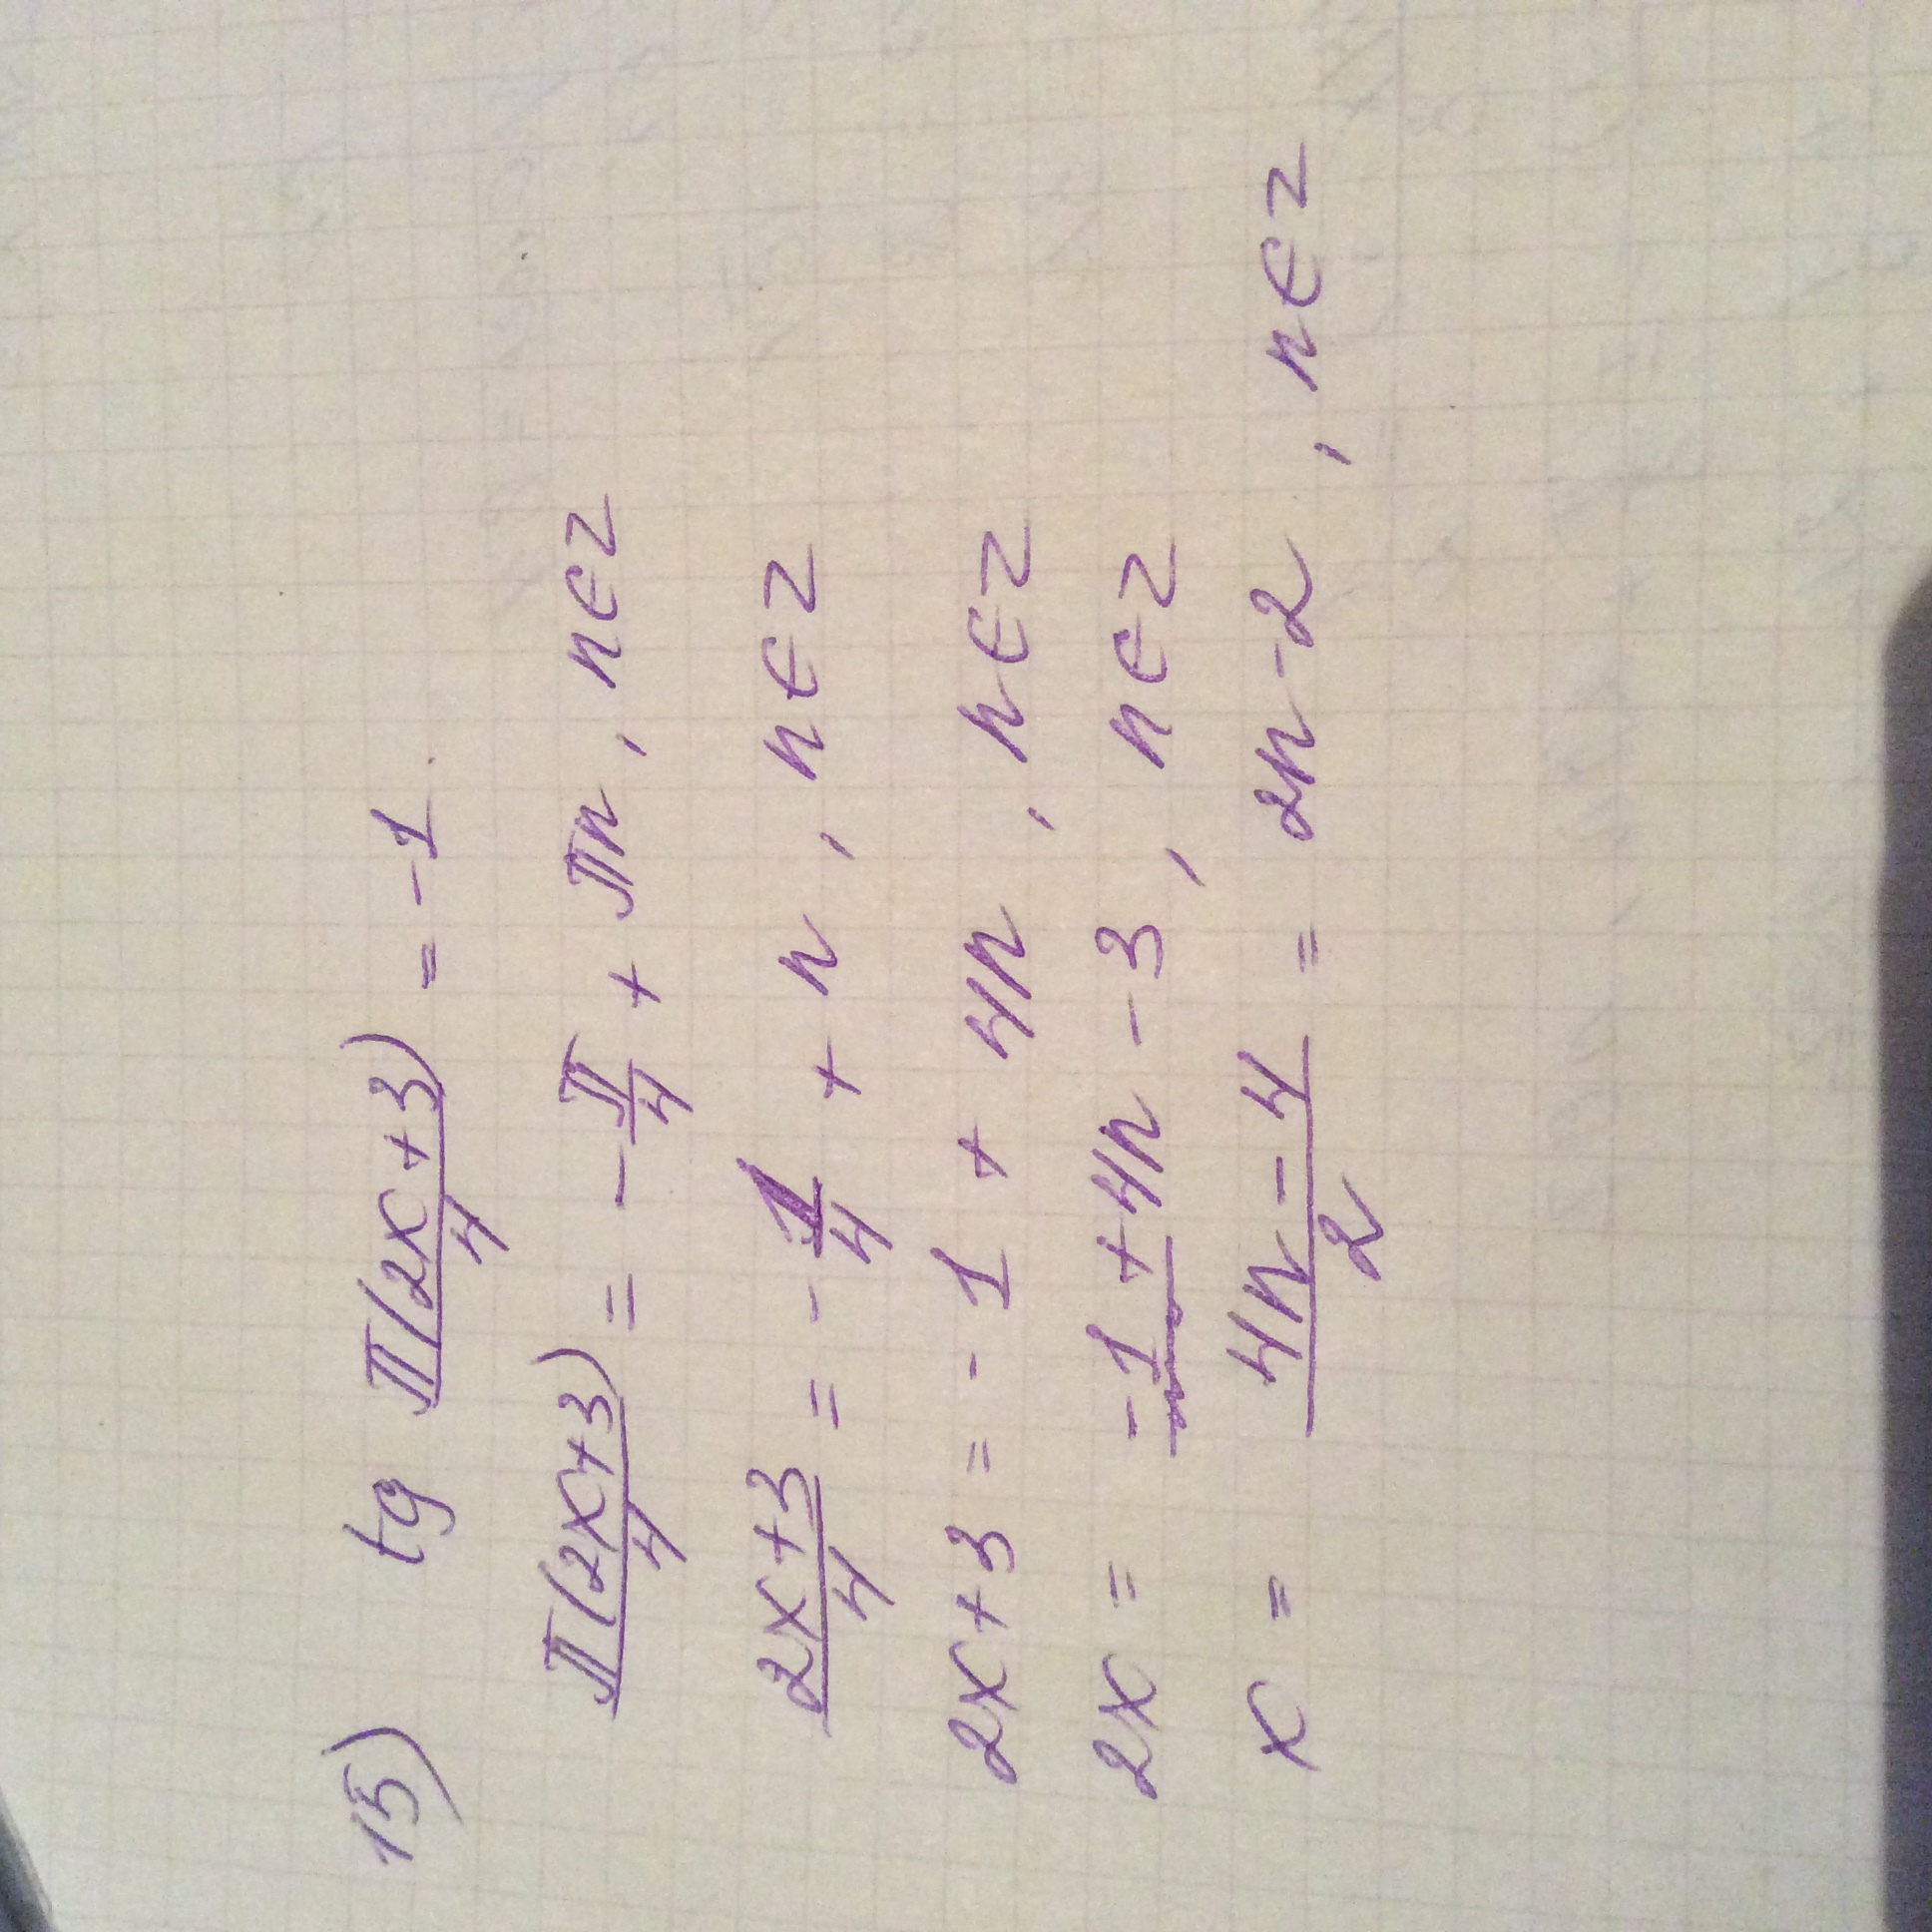 15) tg π(2x+3)/4 = -1.
π(2x+3)/4 = -π/4 + πn, n∈z
2x+3/4 = -1/4 + n, n∈z
2x+3 = -1 + 4n, n∈z
2x = -1+4n-3, n∈z
x = 4n-4/2 = 2n-2, n∈z